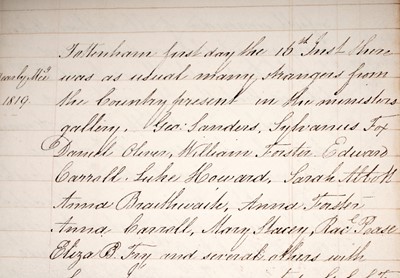 Tottenham first day the 16th Inst there
was as usual many strangers from
the Country present in the ministers
gallery. Geo: Sanders, Sylvanus Fox
Daniel Oliver, William Forster. Edward
Carroll. Luke Howard, Sarah Abbott
Anna Braithwaite, Anna Forster
Anna Carroll, Mary Stacey, Racl. Pease
Eliza B. Fry and several others with
early Mtg
1819.